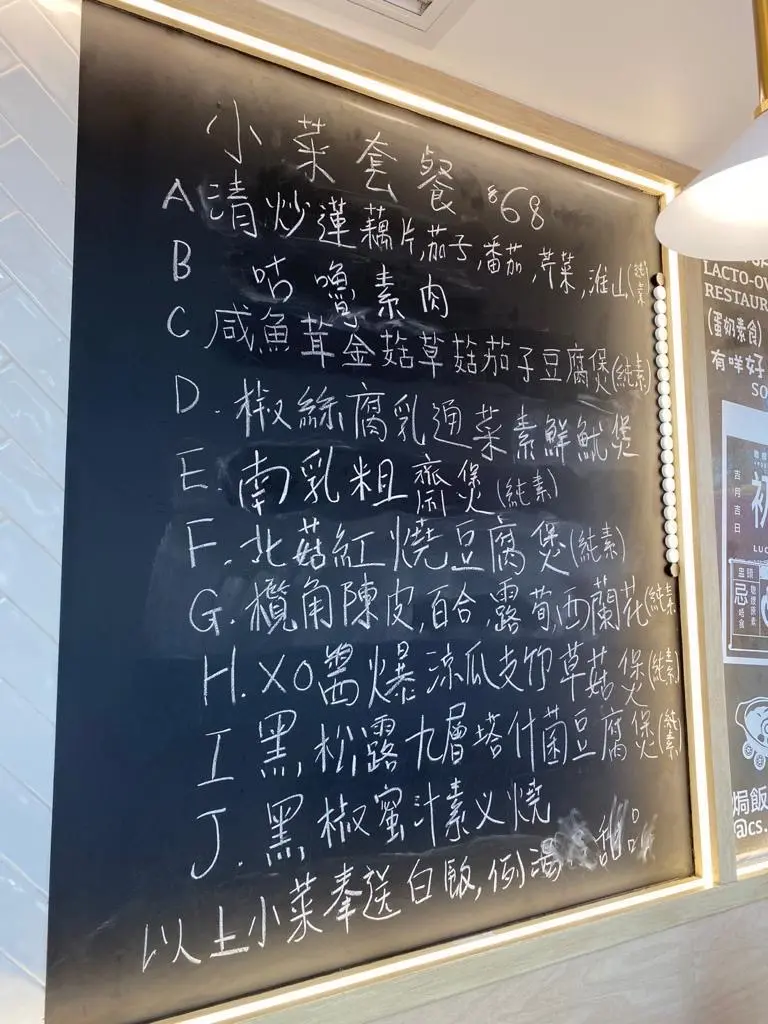 小菜套餐 $68
A 清炒蓮藕片,茄子,番茄,芹菜,淮山(純素)
B 咕嚕素肉
C 咸魚茸金菇草菇茄子豆腐煲(純素)
D. 椒絲腐乳通菜素鮮魷煲
E. 南乳粗齋煲(純素)
F. 北菇紅燒豆腐煲(純素)
G. 欖角陳皮,百合,露荀,西蘭花(純素
H. XO醬爆涼瓜支竹草菇煲(純素)
I 黑松露九層塔什菌豆腐煲(純素
J. 黑椒蜜汁素义燒
以上小菜奉送白飯,例湯 甜品
LACTO-OV
RESTAUR
(蛋奶素食)
有咩好
SO
初
吉月吉日
LUC
忌
焗飯
@cs.